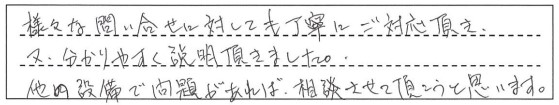 様々な問い合せに対しても丁寧にご対応頂き、
又、分かりやすく説明頂きました。
他の設備で問題があれば、相談させて頂こうと思います。